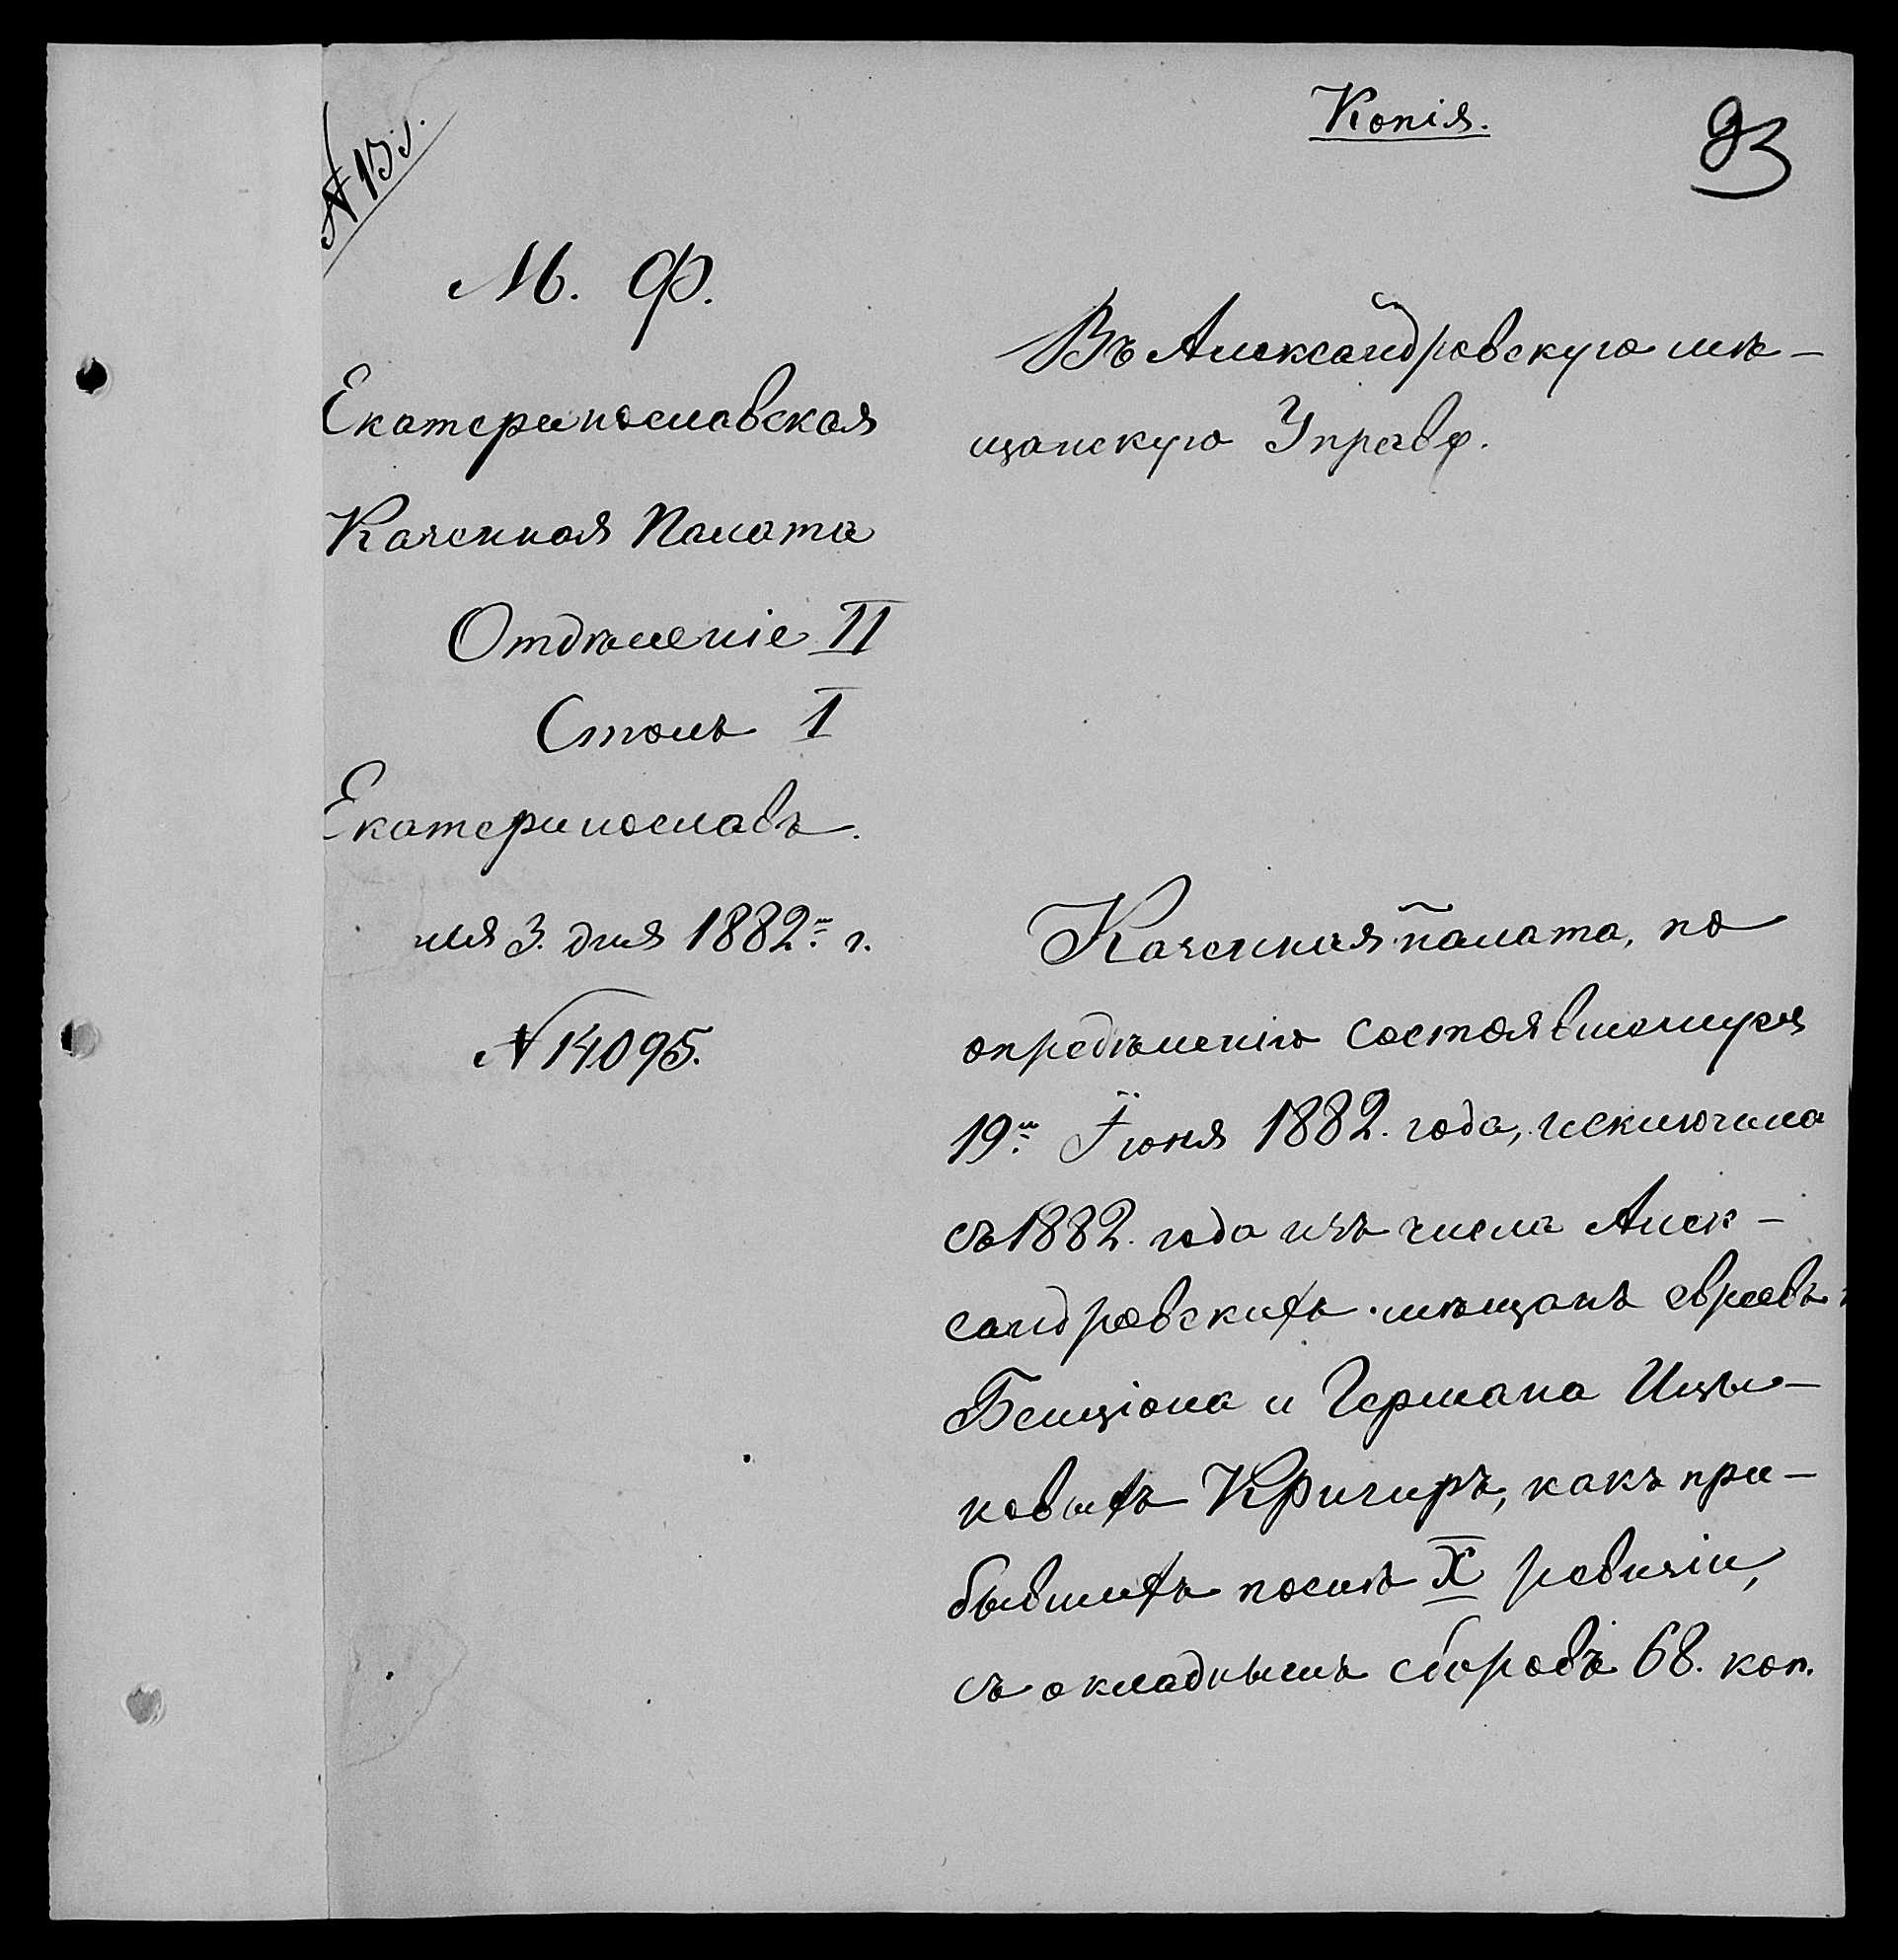 Копія.
93
М. Ф.
Екатеринославская
Казенная Палата
Отдѣленіе II
Столъ I
Екатеринославъ.
3. дня 1882 г.
№ 14095.
Въ Александровскую мѣ-
щанскую Управу.
Казенная палата, по
опредѣленію состоявшемуся
19 Іюня 1882. года, исключила
съ 1882. года изъ числа Алек-
сандровскихъ мѣщанъ евреевъ
Бенціона и Германа Ицы-
ковыхъ Кригиръ, какъ при-
бывшихъ послѣ X ревизіи,
съ окладнымъ сборовъ 68. коп.